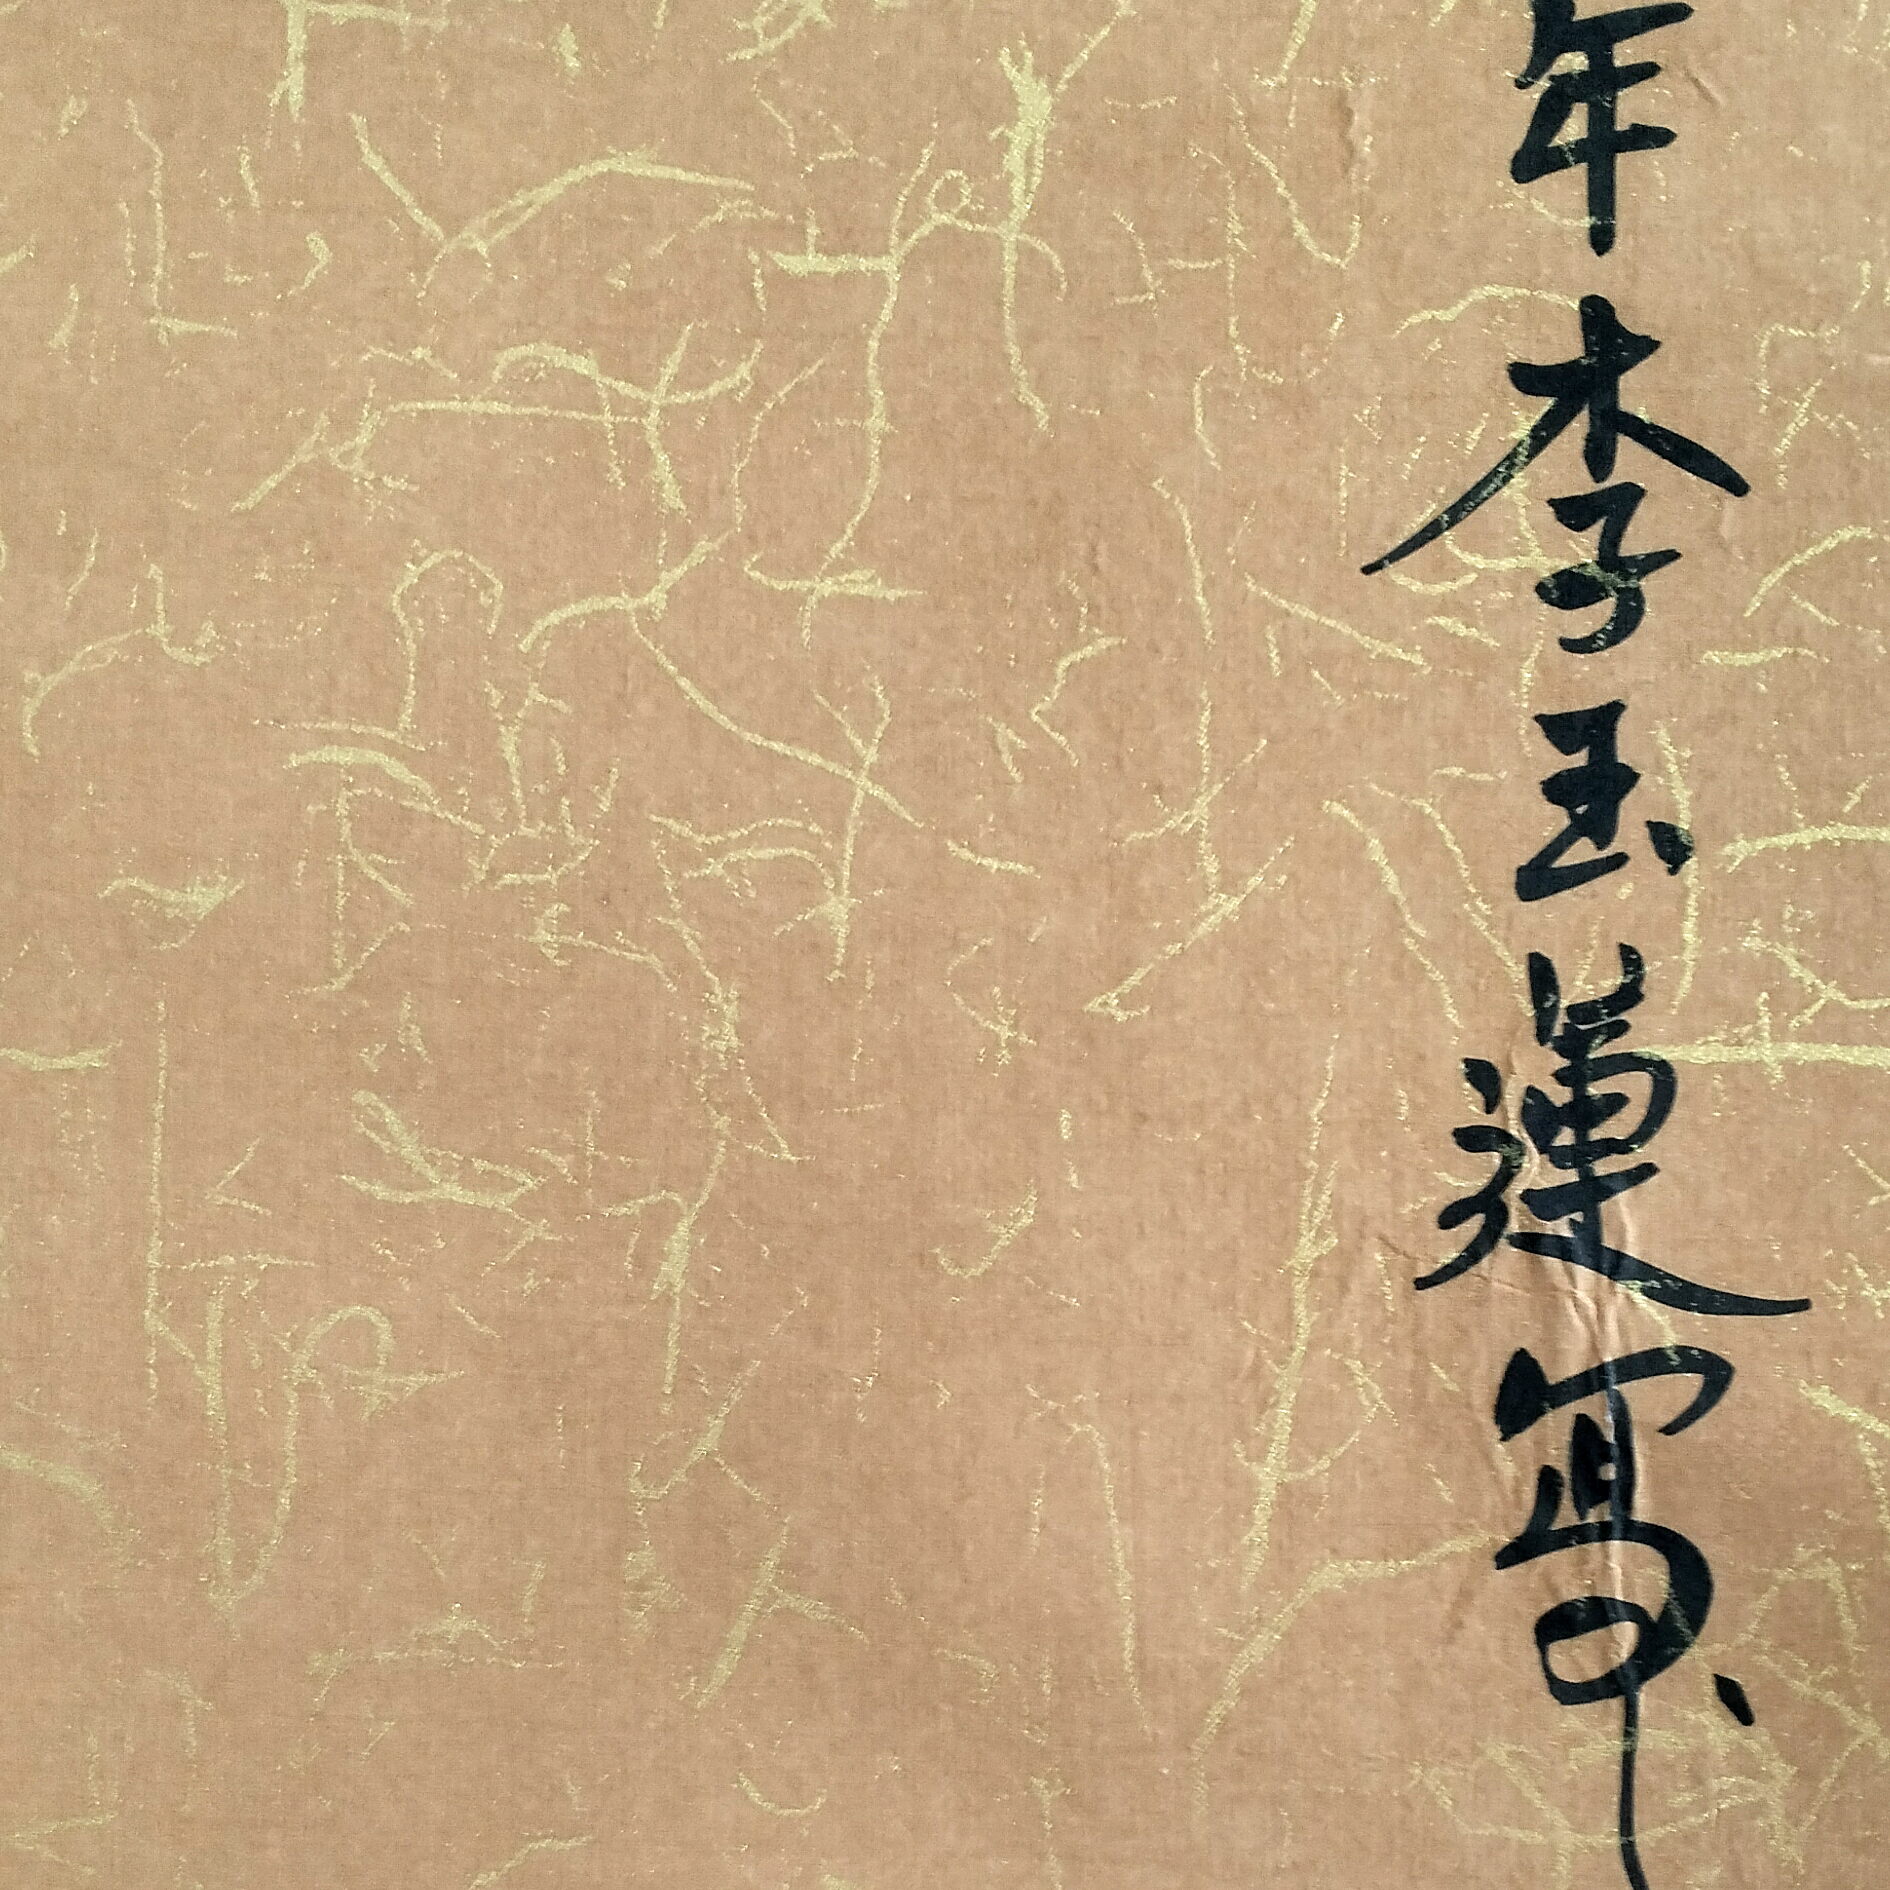 年李玉蓮寫